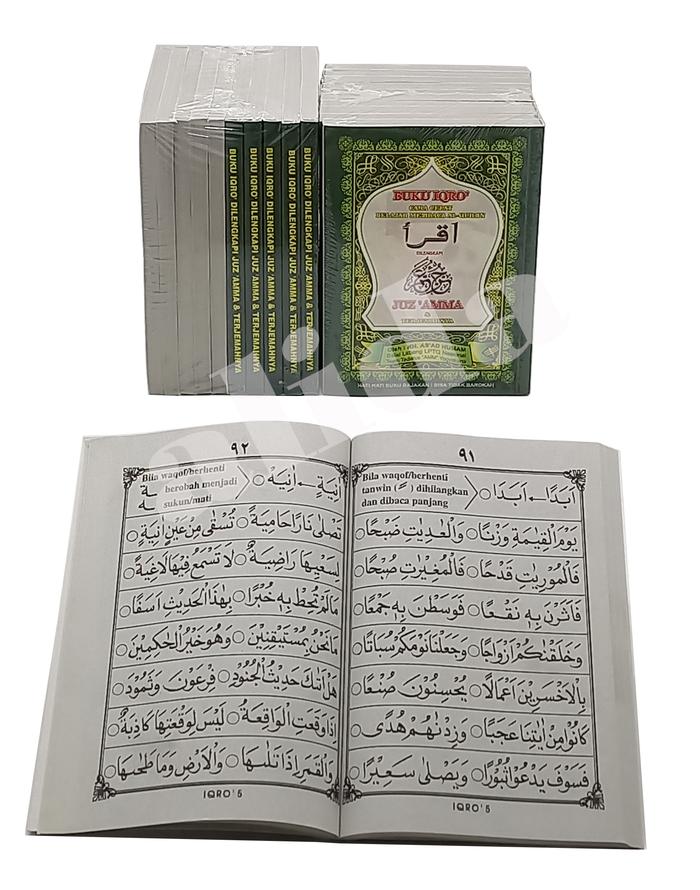 BUKU IQRO' DILENGKAPI JUZ 'AMMA & TERJEMAHNYA
BUKU IQRO' DILENGKAPI JUZ 'AMMA & TERJEMAHNYA
BUKU IQRO' DILENGKAPI JUZ 'AMMA & TERJEMAHNYA
BUKU IQRO' DILENGKAPI JUZ 'AMMA & TERJEMAHNYA
BUKU IQRO' DILENGKAPI JUZ 'AMMA & TERJEMAHNYA
BUKU IQRO'
CARA CEPAT
BELAJAR MEMBACA AL-QUR'AN
اقرأ
DILENGKAPI
JUZ 'AMMA
&
TERJEMAHNYA
Oleh : KH. AS'AD HUMAM
Balai Litbang LPTQ Nasional
Team Tadarus "AMM" Yogyakarta
HATI HATI BUKU BAJAKAN ! BISA TIDAK BAROKAH
alida
٩١
Bila waqof/berhenti
tanwin ( ـً ) dihilangkan
dan dibaca panjang
اَبَدًا ← اَبَدَا
يَوْمَ الْقِيٰمَةِ وَزْنًا ○ وَالْعٰدِيٰتِ ضَبْحًا
فَالْمُوْرِيٰتِ قَدْحًا ○ فَالْمُغِيْرٰتِ صُبْحًا
فَاَثَرْنَ بِهٖ نَقْعًا ○ فَوَسَطْنَ بِهٖ جَمْعًا
وَخَلَقْنٰكُمْ اَزْوَاجًا ○ وَجَعَلْنَا نَوْمَكُمْ سُبَاتًا
بِالْاَخْسَرِيْنَ اَعْمَالًا ○ يُحْسِنُوْنَ صُنْعًا
كَانُوْا مِنْ اٰيٰتِنَا عَجَبًا ○ وَزِدْنٰهُمْ هُدًى
فَسَوْفَ يَدْعُوْا ثُبُوْرًا ○ وَيَصْلٰى سَعِيْرًا
IQRO' 5
٩٢
Bila waqof/berhenti
ـة berobah menjadi
ـه sukun/mati
اٰنِيَةٍ ← اٰنِيَهْ
تَصْلٰى نَارًا حَامِيَةً ○ تُسْقٰى مِنْ عَيْنٍ اٰنِيَةٍ
لِسَعْيِهَا رَاضِيَةٌ ○ لَا تَسْمَعُ فِيْهَا لَاغِيَةً
مَا لَمْ تُحِطْ بِهٖ خُبْرًا ○ بِهٰذَا الْحَدِيْثِ اَسَفًا
مَا نَحْنُ بِمُسْتَيْقِنِيْنَ ○ وَهُوَ خَيْرُ الْحٰكِمِيْنَ
هَلْ اَتٰىكَ حَدِيْثُ الْجُنُوْدِ ○ فِرْعَوْنَ وَثَمُوْدَ
اِذَا وَقَعَتِ الْوَاقِعَةُ ○ لَيْسَ لِوَقْعَتِهَا كَاذِبَةٌ
وَالْقَمَرِ اِذَا تَلٰىهَا ○ وَالْاَرْضِ وَمَا طَحٰىهَا
IQRO' 5